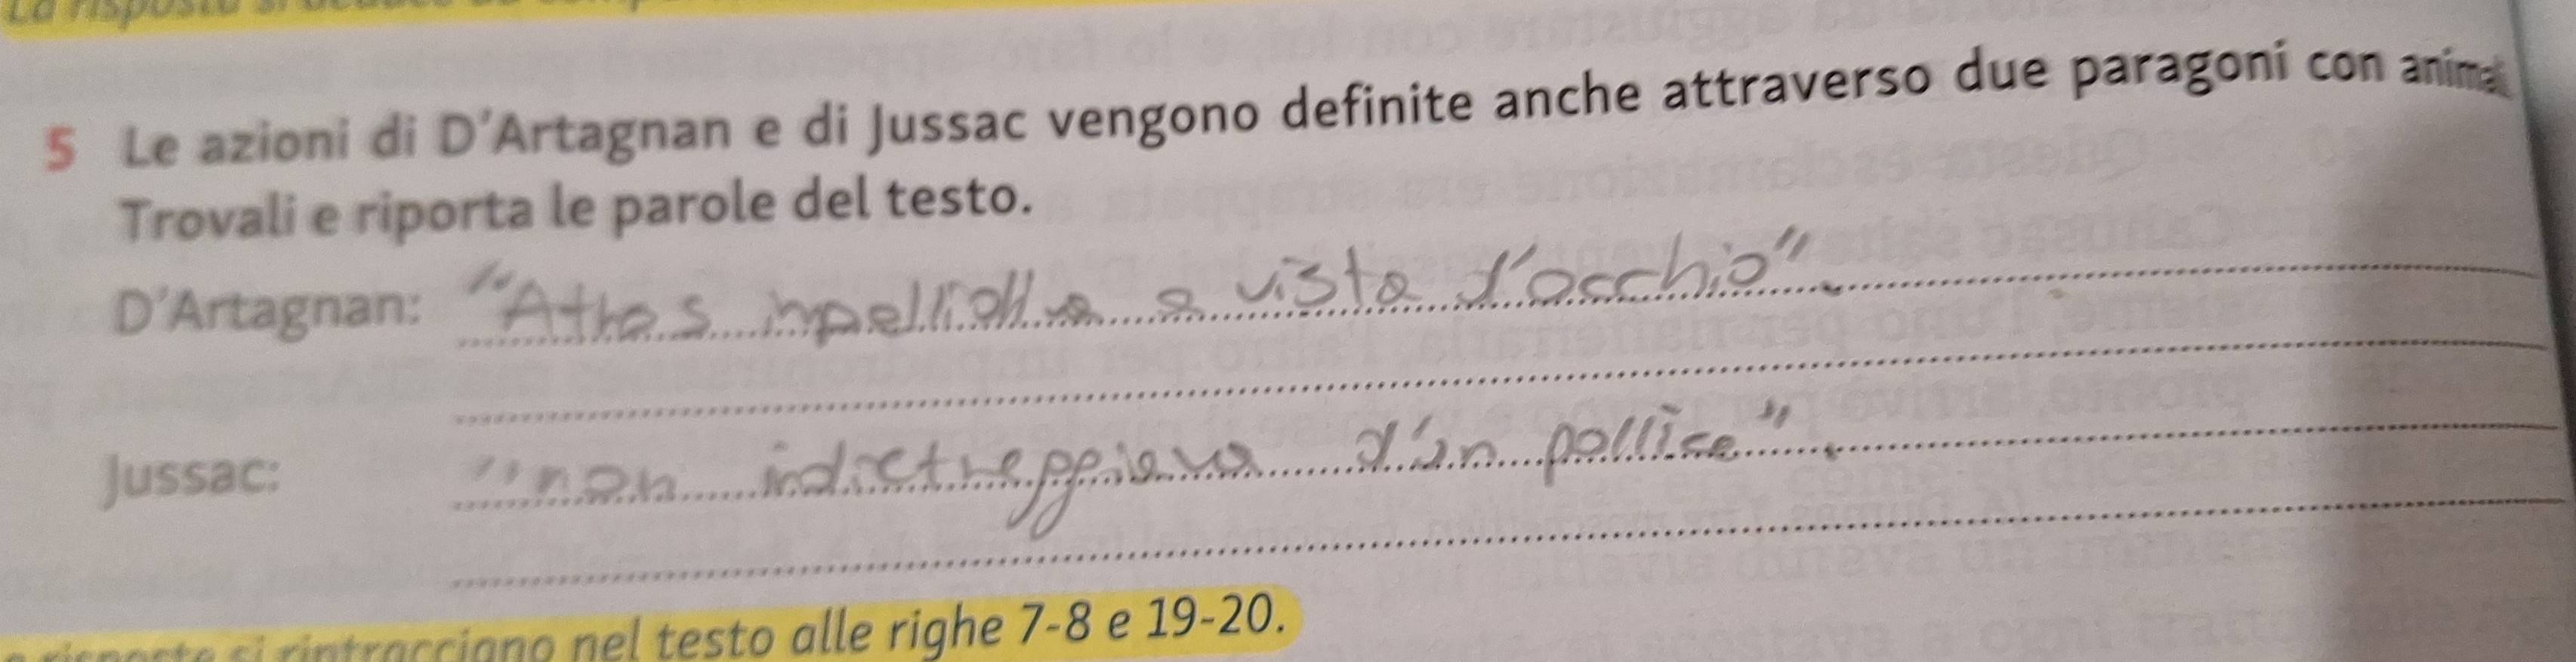 La risposta si
5 Le azioni di D'Artagnan e di Jussac vengono definite anche attraverso due paragoni con anima
Trovali e riporta le parole del testo.
D'Artagnan: "Athos a vista d'occhio".
Jussac: "non indietreggiava d'un pollice".
risposte si rintracciano nel testo alle righe 7-8 e 19-20.